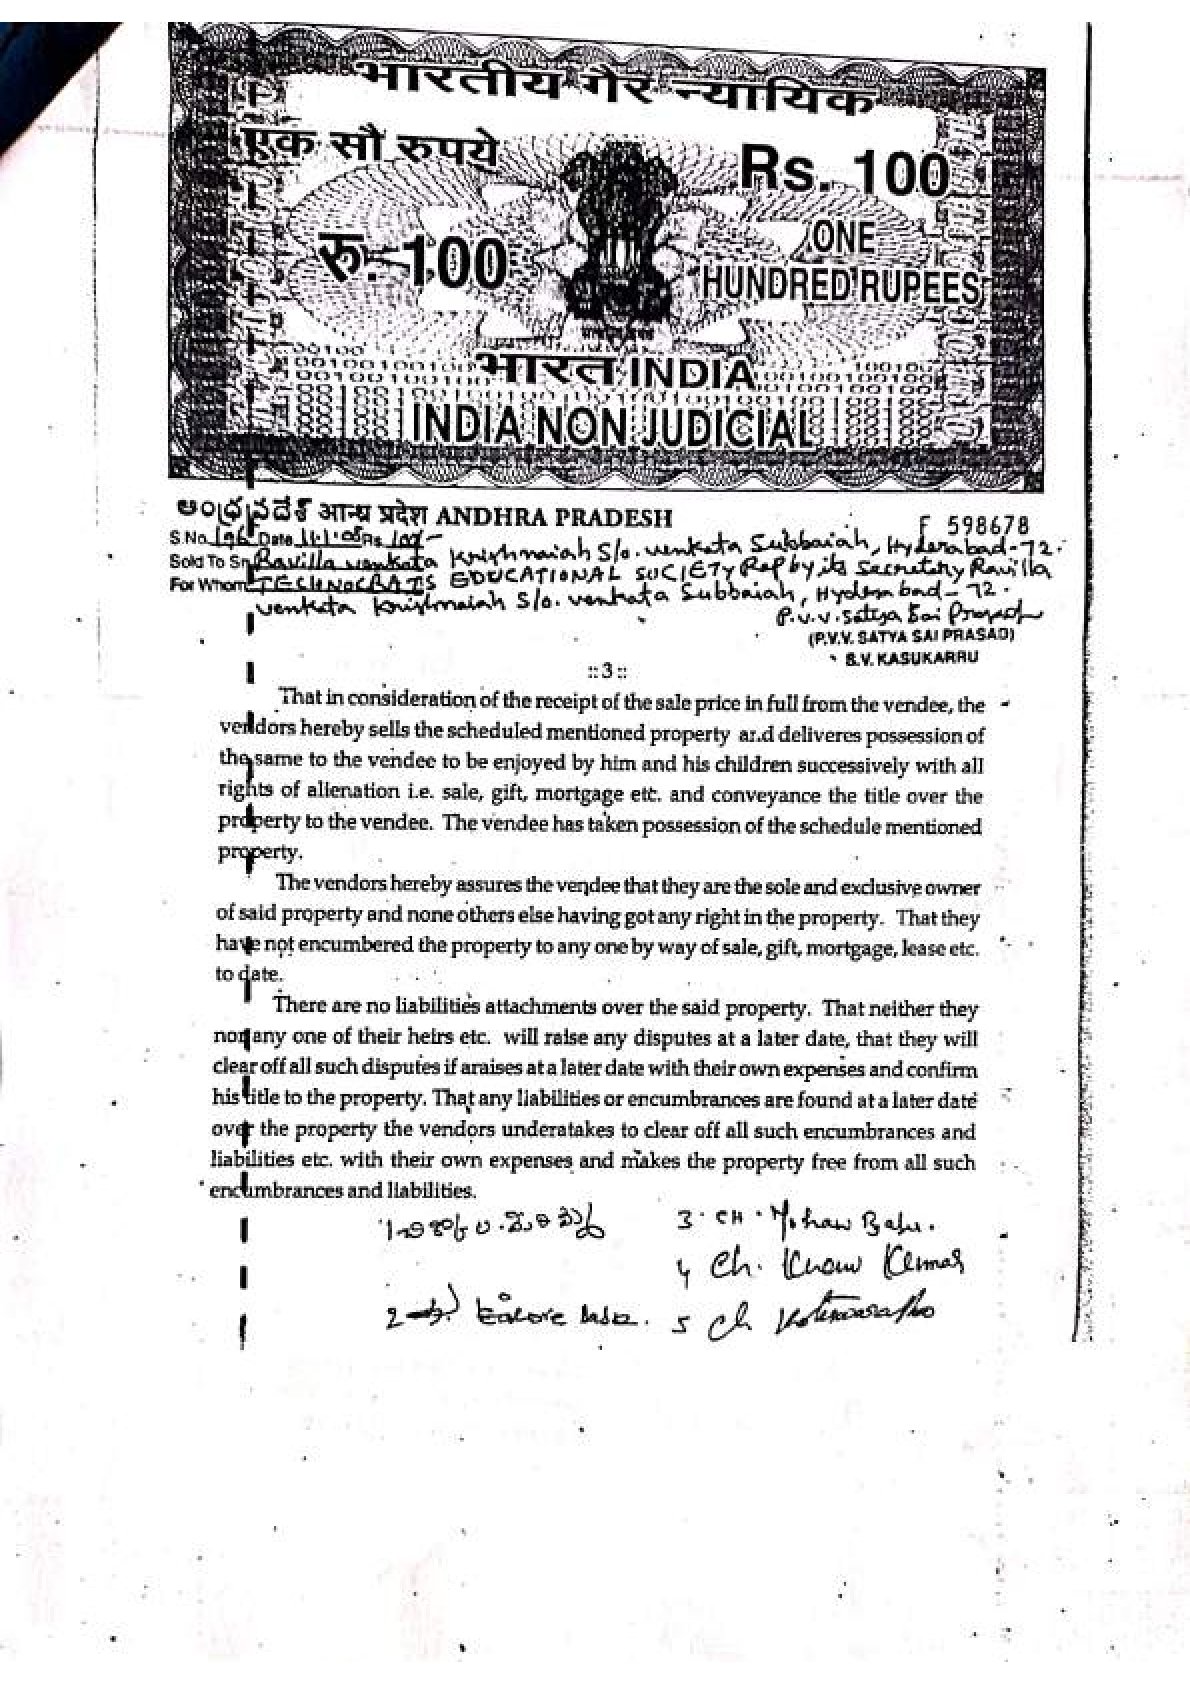 भारतीय गैर न्यायिक
एक सौ रुपये
Rs. 100
रु. 100
ONE
HUNDRED RUPEES
भारत INDIA
INDIA NON JUDICIAL
ఆంధ్రప్రదేశ్ आन्ध्र प्रदेश ANDHRA PRADESH
F 598678
S.No. 196 Date 11.1.08 Rs. 100/-
Sold To Sri Ravilla Venkata Krishnaiah S/o. Venkata Subbaiah, Hyderabad-72.
For Whom TECHNOCRATS EDUCATIONAL SOCIETY Rep by its Secretary Ravilla
Venkata Krishnaiah S/o. Venkata Subbaiah, Hyderabad-72.
P.V.V. Satya Sai Prasad
(P.V.V. SATYA SAI PRASAD)
S.V. KASUKARRU
:: 3 ::
That in consideration of the receipt of the sale price in full from the vendee, the
vendors hereby sells the scheduled mentioned property and deliveres possession of
the same to the vendee to be enjoyed by him and his children successively with all
rights of alienation i.e. sale, gift, mortgage etc. and conveyance the title over the
property to the vendee. The vendee has taken possession of the schedule mentioned
property.
The vendors hereby assures the vendee that they are the sole and exclusive owner
of said property and none others else having got any right in the property. That they
have not encumbered the property to any one by way of sale, gift, mortgage, lease etc.
to date.
There are no liabilities attachments over the said property. That neither they
nor any one of their heirs etc. will raise any disputes at a later date, that they will
clear off all such disputes if araises at a later date with their own expenses and confirm
his title to the property. That any liabilities or encumbrances are found at a later date
over the property the vendors underatakes to clear off all such encumbrances and
liabilities etc. with their own expenses and makes the property free from all such
encumbrances and liabilities.
1
3. CH. Mohan Babu.
4 Ch. Kumar
2
5 Ch Koteswararao